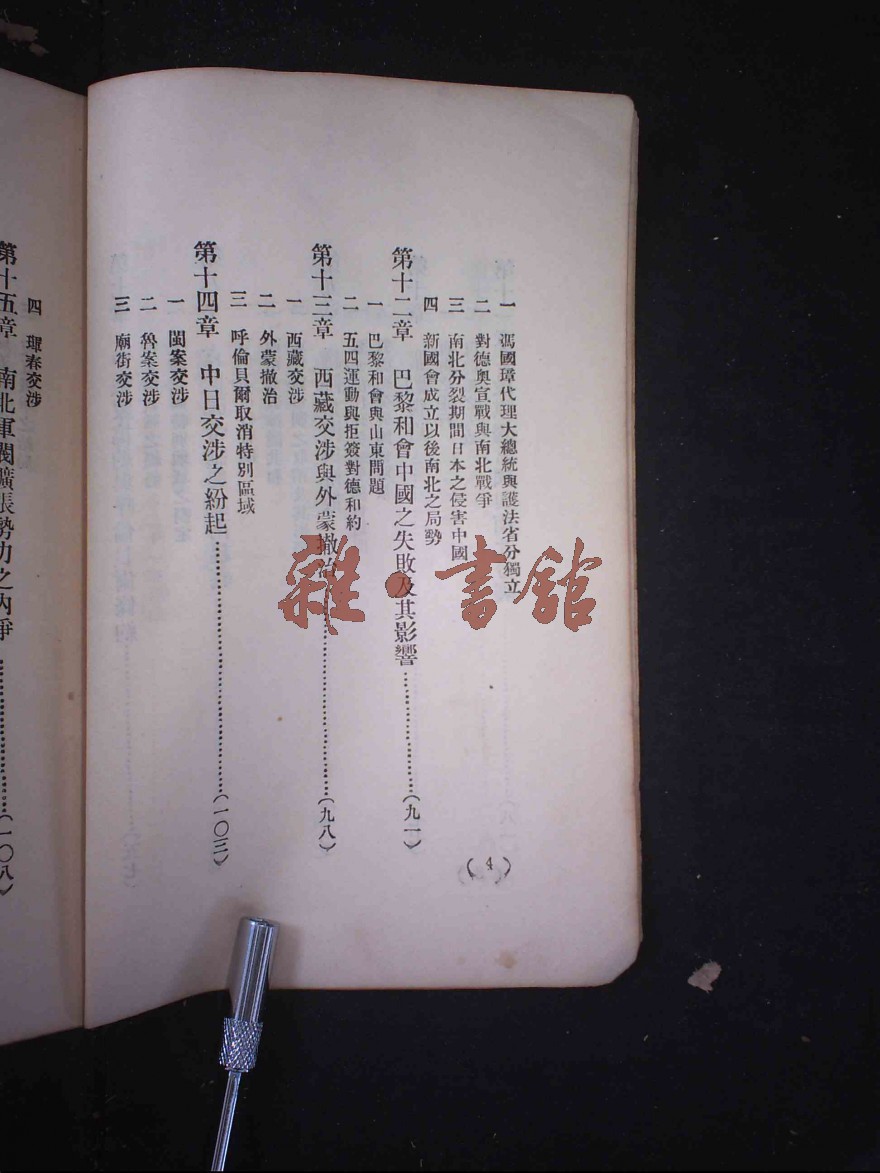 一 馮國璋代理大總統與護法省分獨立
二 對德奧宣戰與南北戰爭
三 南北分裂期間日本之侵害中國
四 新國會成立以後南北之局勢
第十二章 巴黎和會中國之失敗及其影響……………………(九一)
一 巴黎和會與山東問題
二 五四運動與拒簽對德和約
第十三章 西藏交涉與外蒙撤治……………………(九八)
一 西藏交涉
二 外蒙撤治
三 呼倫貝爾取消特別區域
第十四章 中日交涉之紛起……………………(一〇三)
一 閩案交涉
二 魯案交涉
三 廟街交涉
(4)
四 琿春交涉
第十五章 南北軍閥擴張勢力之內爭……………………(一〇八)
雜·書館